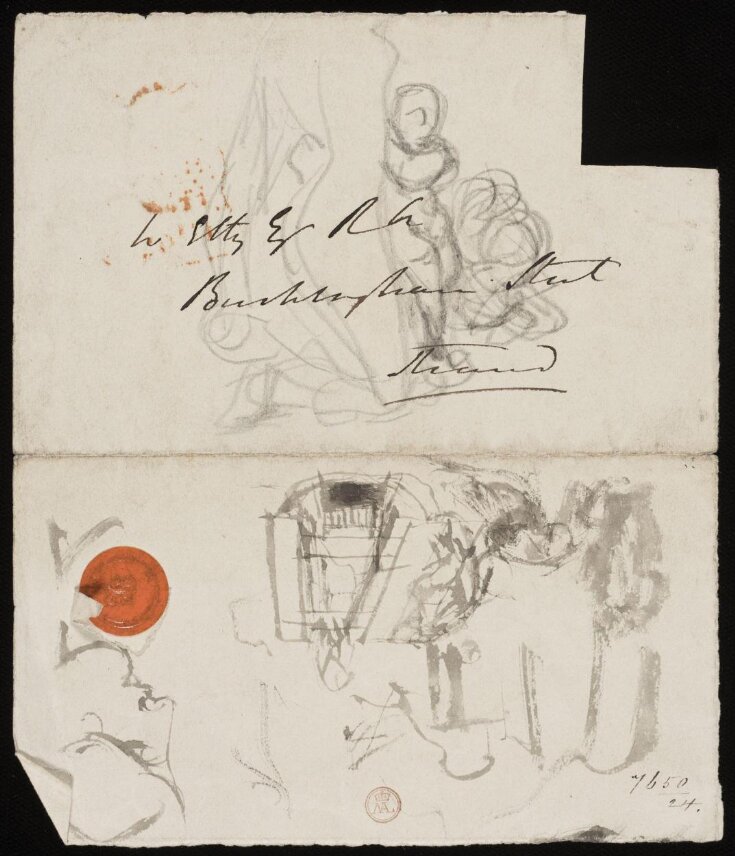 W Etty Esqr R A
Buckingham Street
Strand
7650
24.